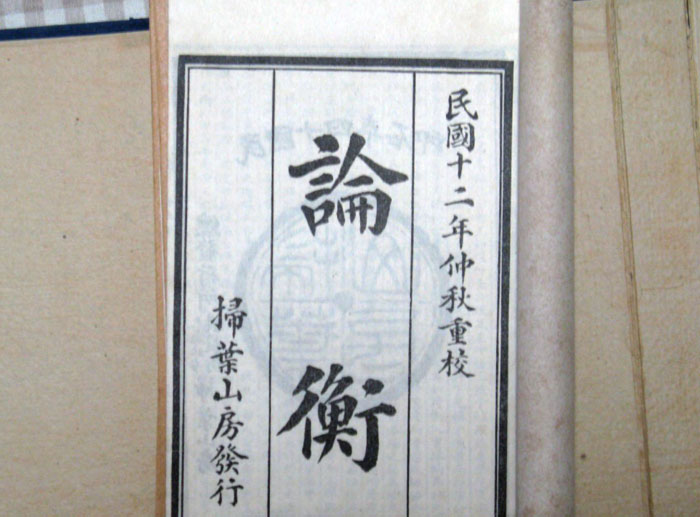 民國十二年仲秋重校
論衡
掃葉山房發行